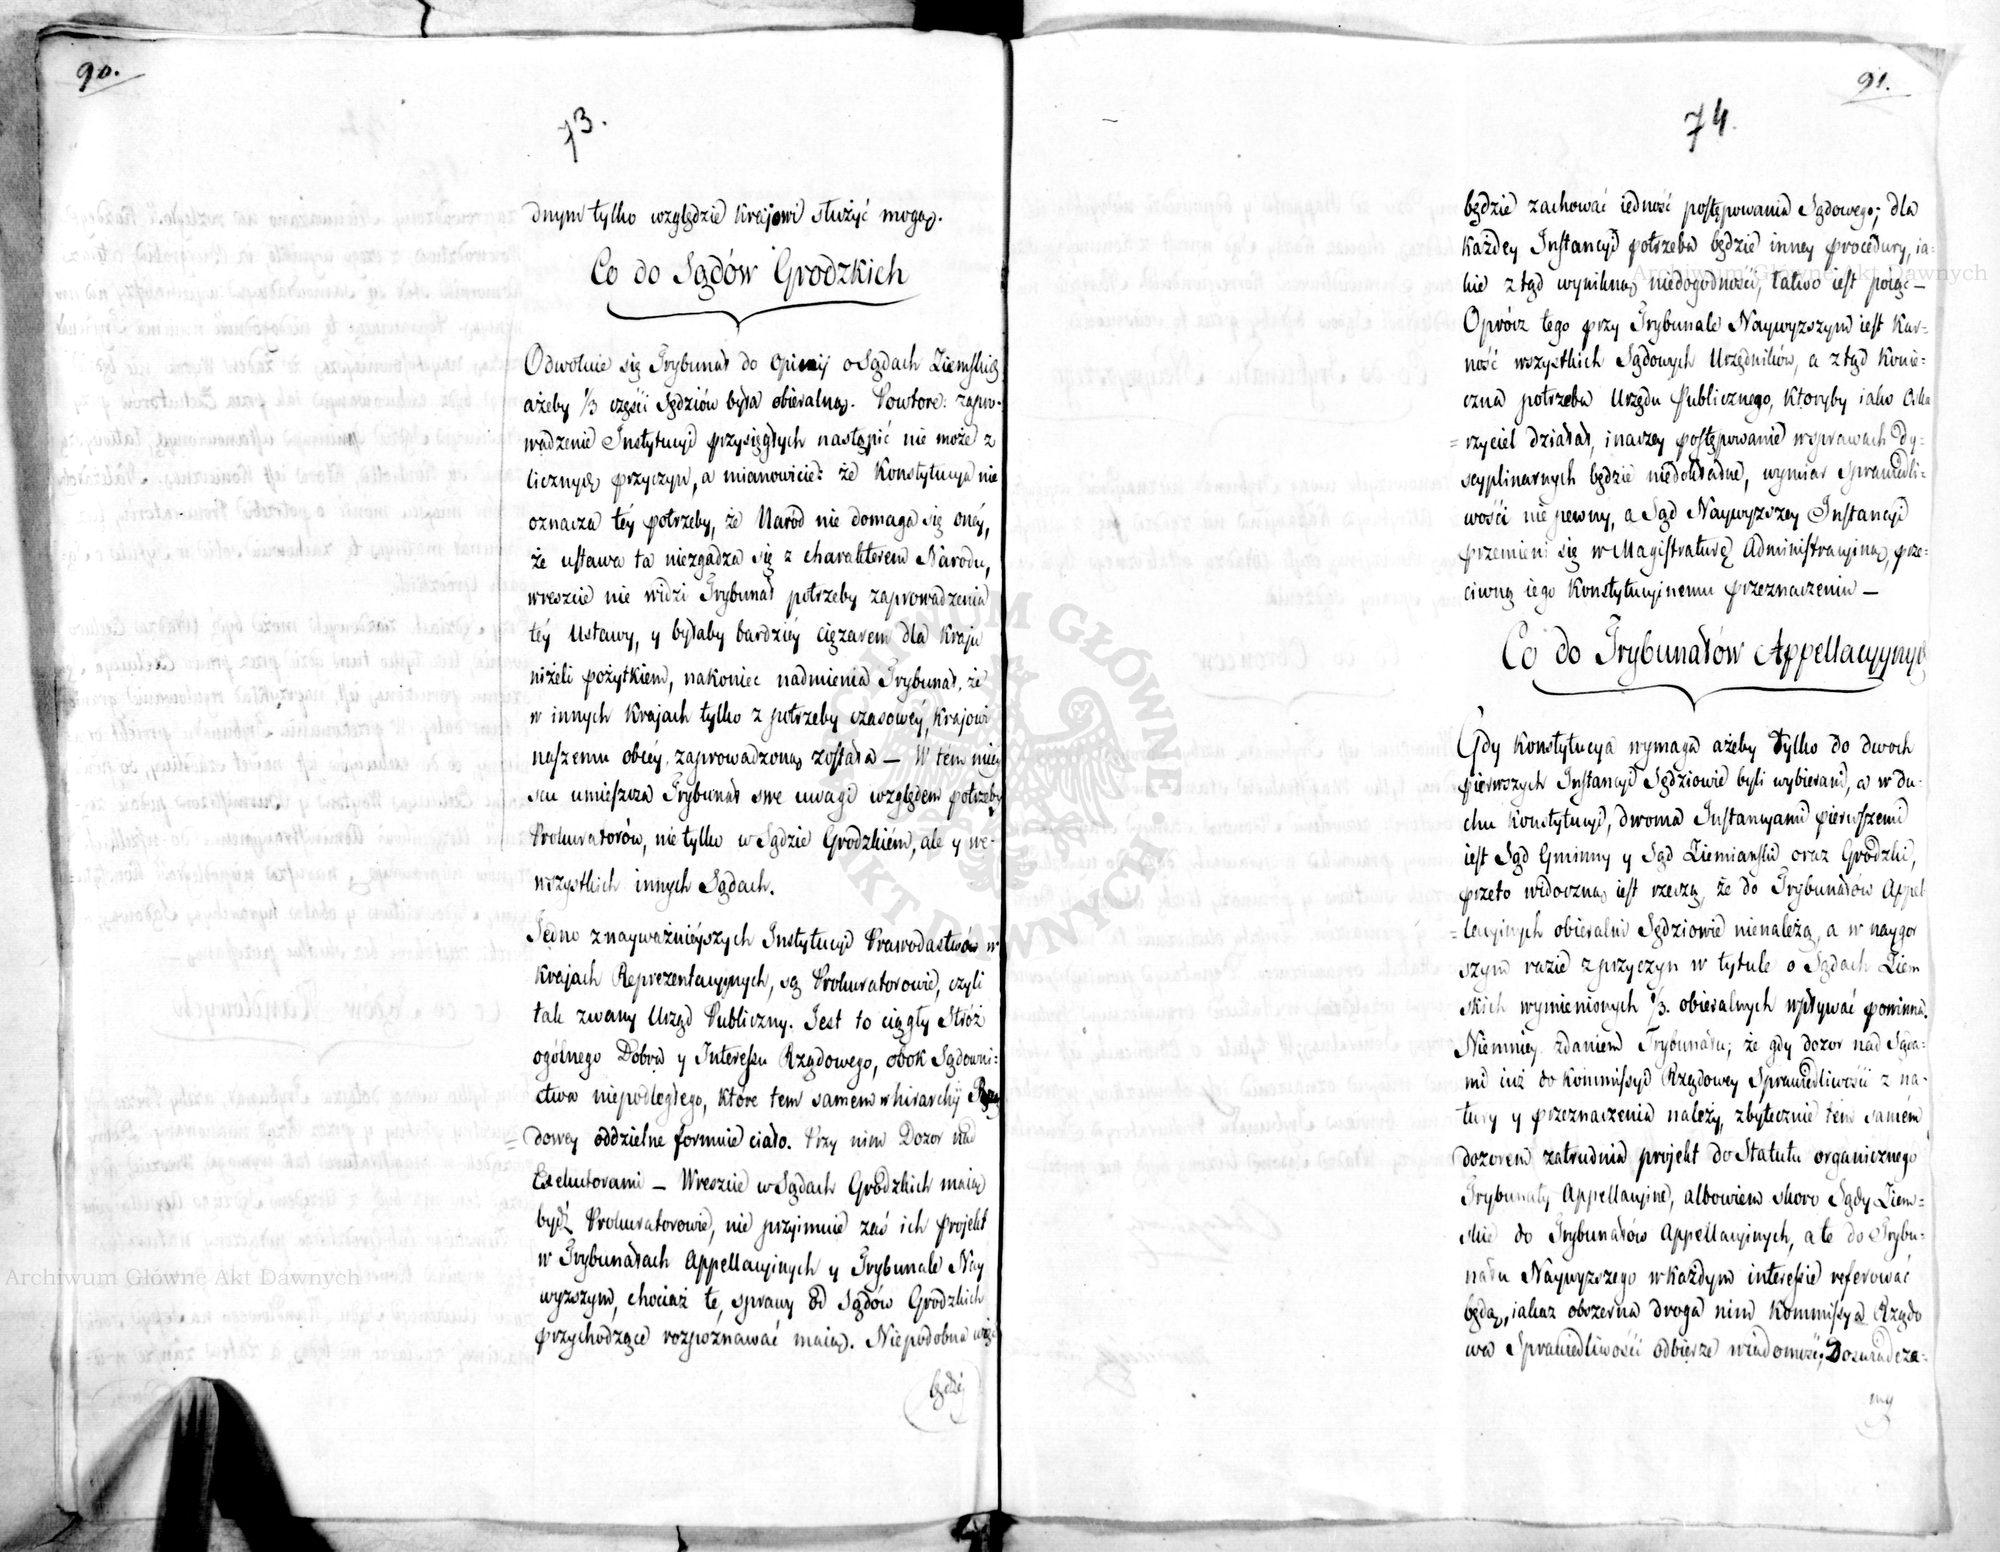 90.
73.
dnym tylko względzie Krajowi służyć mogą.
Co do Sądów Grodzkich
Odwołuie się Trybunał do Opinij o Sądach Ziemskich
ażeby 1/3 części Sędziów była obieralną. Powtore: zapro-
wadzenie Instytucyi przysięgłych nastąpić nie może z
licznych przyczyn, a mianowicie: że Konstytucya nie
oznacza téy potrzeby, że Naród nie domaga się onéy,
że ustawa ta niezgadza się z charakterem Narodu,
wreszcie nie widzi Trybunał potrzeby zaprowadzenia
téy Ustawy, y byłaby bardziéy ciężarem dla Kraju
niżeli pożytkiem, nakoniec nadmienia Trybunał, że
w innych Krajach tylko z potrzeby czasowey, Krajowi
naszemu obcéy, zaprowadzoną została — W tém miéy
scu umieszcza Trybunał swe uwagi względem potrzeby
Prokuratorów, nie tylko w Sądzie Grodzkiém, ale y we-
wszystkich innych Sądach.
Jedno z nayważniéyszych Instytucyi Prawodastwów w
Krajach Reprezentacyjnych, są Prokuratorowie, czyli
tak zwany Urząd Publiczny. Jest to ciągły Stróż
ogólnego Dobra y Interessu Rządowego, obok Sądowni-
ctwa niepodległego, które tem samem w hirarchij Rzą
dowey oddzielne formuie ciało. Przy nim Dozor nad
Exekutorami — Wreszcie w Sądach Grodzkich maią
bydź Prokuratorowie, nie przyimuie zaś ich projekt
w Trybunałach Appellacyinych y Trybunale Nay
wyzszym, chociaż te, sprawy od Sądów Grodzkich
przychodzące rozpoznawać maią. Niepodobna więc
będzié
91.
74.
będzie zachować iedność postępowania Sądowego; dla
każdey Instancyi potrzeba będzie inney procedury, ia-
kie ztąd wynikną niedogodności, łatwo iest poiąć —
Oprócz tego przy Trybunale Naywyzszym iest Kar-
ność wszystkich Sądowych Urzędników, a ztąd konie-
czna potrzeba Urzędu Publicznego, któryby iako Oska
rzyciel działał, inaczey postępowanie w sprawach Dy-
scyplinarnych będzie niedokładne, wymiar Sprawiedli-
wości niepewny, a Sąd Naywyzszey Instancyi
przemieni się w Magistraturę Administracyiną, prze-
ciwną iego Konstytucyinemu przeznaczeniu —
Co do Trybunałów Appellacyynych
Gdy Konstytucya wymaga ażeby tylko do dwoch
pierwszych Instancyi Sędziowie byli wybierani, a w du-
chu Konstytucyi, dwoma Instancyami pierwszemi
iest Sąd Gminny y Sąd Ziemianski oraz Grodzki,
przeto widoczną iest rzeczą, że do Trybunałów Appel
lacyinych obieralni Sędziowie nienależą, a w naygor
szym razie z przyczyn w tytule o Sądach Ziem
skich wymienionych 1/3. obieralnych wpływać powinna.
Niemniey zdaniem Trybunału; że gdy dozor nad Sąda-
mi iuż do Kommissyi Rządowey Sprawiedliwości z na-
tury y przeznaczenia należy, zbytecznie tém samém
dozorem zatrudnia projekt do Statutu organicznego
Trybunały Appellacyine, albowiem skoro Sądy Ziem-
skie do Trybunałów Appellacyinych, a te do Trybu-
nału Naywyzszego w każdym interessie referować
będą, iakaż obszerna droga nim Kommissya Rządo
wa Sprawiedliwości odbierze wiadomość; Doswiadcza-
my
Archiwum Główne Akt Dawnych
Archiwum Główne Akt Dawnych
ARCHIWUM GŁÓWNE AKT DAWNYCH